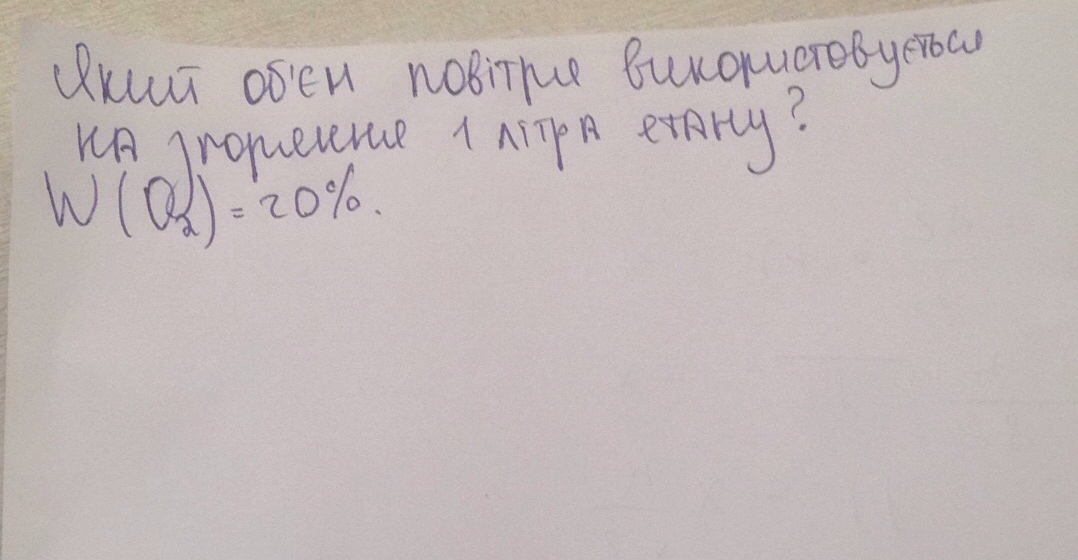 Який об'єм повітря використовується
на згорення 1 літра етану?
W(O₂)=20%.